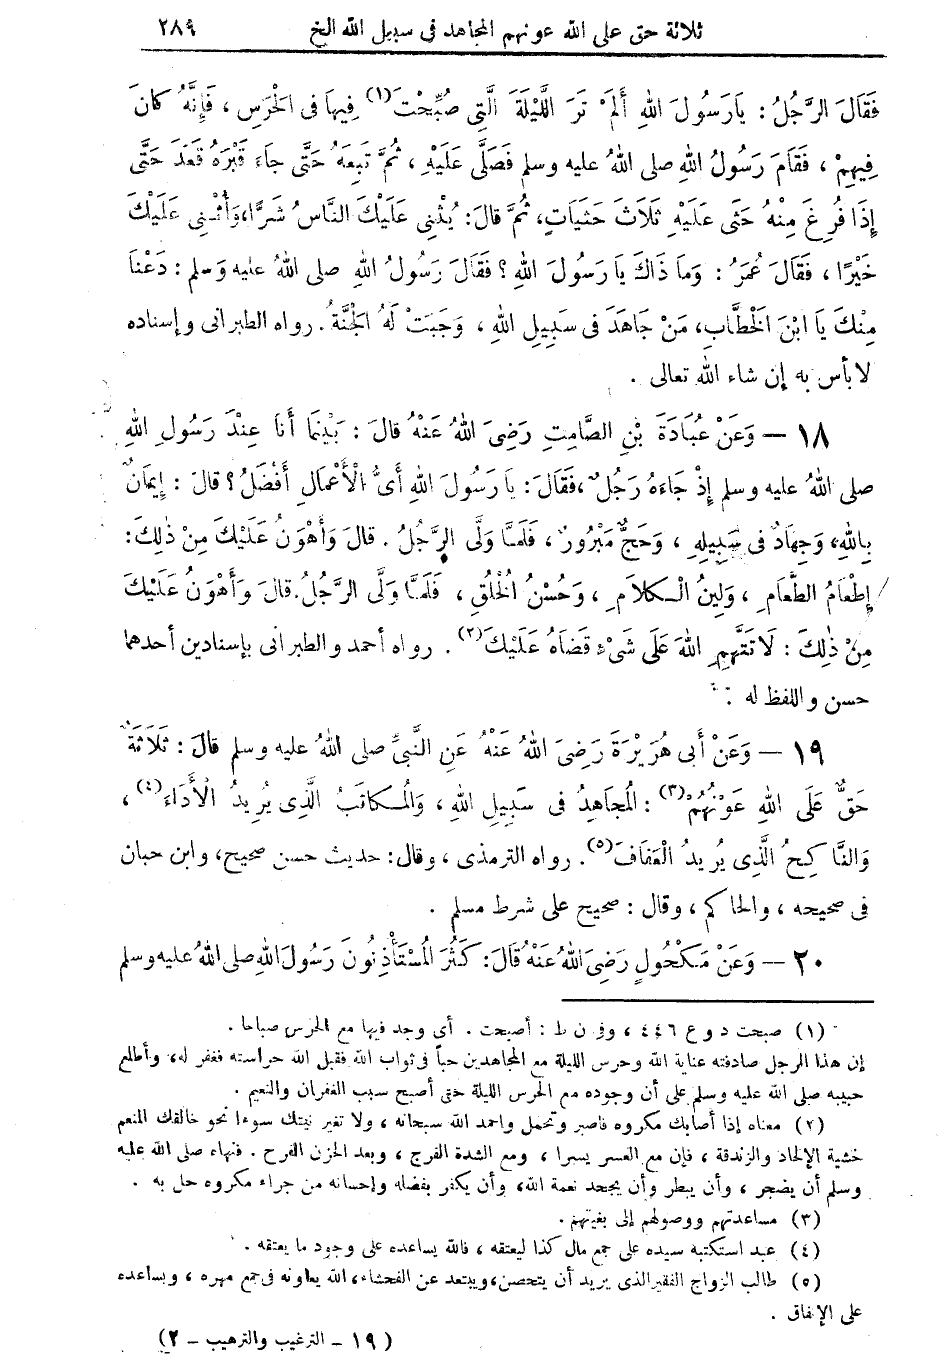 ثلاثة حق على الله عونهم المجاهد فى سبيل الله الخ ٢٨٩
فَقَالَ الرَّجُلُ : يَارَسُولَ اللهِ أَلَمْ تَرَ اللَّيْلَةَ الَّتِى صُبِّحْتَ (١) فِيهَا فِى الْحَرَسِ ، فَإِنَّهُ كَانَ
فِيهِمْ ، فَقَامَ رَسُولُ اللهِ صلى اللهُ عليه وسلم فَصَلَّى عَلَيْهِ ، ثُمَّ تَبِعَهُ حَتَّى جَاءَ قَبْرَهُ قَعَدَ حَتَّى
إِذَا فُرِغَ مِنْهُ حَثَى عَلَيْهِ ثَلَاثَ حَثَيَاتٍ، ثُمَّ قَالَ: يُثْنِى عَلَيْكَ النَّاسُ شَرًّا، وَأُثْنِى عَلَيْكَ
خَيْرًا ، فَقَالَ عُمَرُ : وَمَا ذَاكَ يَا رَسُولَ اللهِ ؟ فَقَالَ رَسُولُ اللهِ صلى اللهُ عليه وسلم : دَعْنَا
مِنْكَ يَا ابْنَ الْخَطَّابِ، مَنْ جَاهَدَ فى سَبِيلِ اللهِ ، وَجَبَتْ لَهُ الْجَنَّةُ . رواه الطبرانى وإسناده
لا بأس به إن شاء الله تعالى .
١٨ — وَعَنْ عُبَادَةَ بْنِ الصَّامِتِ رَضِىَ اللهُ عَنْهُ قالَ : بَيْنَمَا أَنَا عِنْدَ رَسُولِ اللهِ
صلى اللهُ عليه وسلم إِذْ جَاءَهُ رَجُلٌ ،فَقَالَ: يَا رَسُولَ اللهِ أَىُّ الْأَعْمَالِ أَفْضَلُ؟ قالَ : إِيمَانٌ
بِاللهِ، وَجِهَادٌ فى سَبِيلِهِ ، وَحَجٌّ مَبْرُورٌ ، فَلَمَّا وَلَّى الرَّجُلُ . قالَ وَأَهْوَنُ عَلَيْكَ مِنْ ذٰلِكَ:
إِطْعَامُ الطَّعَامِ ، وَلِينُ الْكَلَامِ ، وَحُسْنُ الْخُلُقِ ، فَلَمَّا وَلَّى الرَّجُلُ. قالَ وَأَهْوَنُ عَلَيْكَ
مِنْ ذٰلِكَ : لَا تَتَّهِمِ اللهَ عَلَى شَىْءٍ قَضَاهُ عَلَيْكَ (٢) . رواه أحمد والطبرانى بإسنادين أحدهما
حسن واللفظ له .
١٩ — وَعَنْ أَبِى هُرَيْرَةَ رَضِىَ اللهُ عَنْهُ عَنِ النَّبِىِّ صلى اللهُ عليه وسلم قالَ : ثَلَاثَةٌ
حَقٌّ عَلَى اللهِ عَوْنُهُمْ (٣) : الْمُجَاهِدُ فى سَبِيلِ اللهِ ، وَالْمُكَاتَبُ الَّذِى يُرِيدُ الْأَدَاءَ (٤) ،
وَالنَّاكِحُ الَّذِى يُرِيدُ الْعَفَافَ (٥) . رواه الترمذى ، وقال: حديث حسن صحيح، وابن حبان
فى صحيحه ، والحاكم ، وقال : صحيح على شرط مسلم .
٢٠ — وَعَنْ مَكْحُولٍ رَضِىَ اللهُ عَنْهُ قَالَ: كَثُرَ الْمُسْتَأْذِنُونَ رَسُولَ اللهِ صلى اللهُ عليه وسلم
(١) صبحت د وع ٤٤٦ ، وفى ن ط : أصبحت . أى وجد فيها مع الحرس صباحا .
إن هذا الرجل صادفته عناية الله وحرس الليلة مع المجاهدين حباً فى ثواب الله فقبل الله حراسته فغفر له، وأطلع
حبيبه صلى الله عليه وسلم على أن وجوده مع الحرس الليلة حتى أصبح سبب الغفران والنعيم .
(٢) معناه إذا أصابك مكروه فاصبر وتحمل واحمد الله سبحانه ، ولا تغير نيتك سوءا نحو خالقك المنعم
خشية الإلحاد والزندقة ، فإن مع العسر يسرا ، ومع الشدة الفرج ، وبعد الحزن الفرح . فنهاه صلى الله عليه
وسلم أن يضجر ، وأن يبطر وأن يجحد نعمة الله، وأن يكفر بفضله وإحسانه من جراء مكروه حل به .
(٣) مساعدتهم ووصولهم إلى بغيتهم.
(٤) عبد استكتبه سيده على جمع مال كذا ليعتقه ، فالله يساعده على وجود ما يعتقه .
(٥) طالب الزواج الفقير الذى يريد أن يتحصن، ويبتعد عن الفحشاء، الله يعاونه فى جمع مهره ، ويساعده
على الإنفاق .
(١٩ – الترغيب والترهيب – ٢)